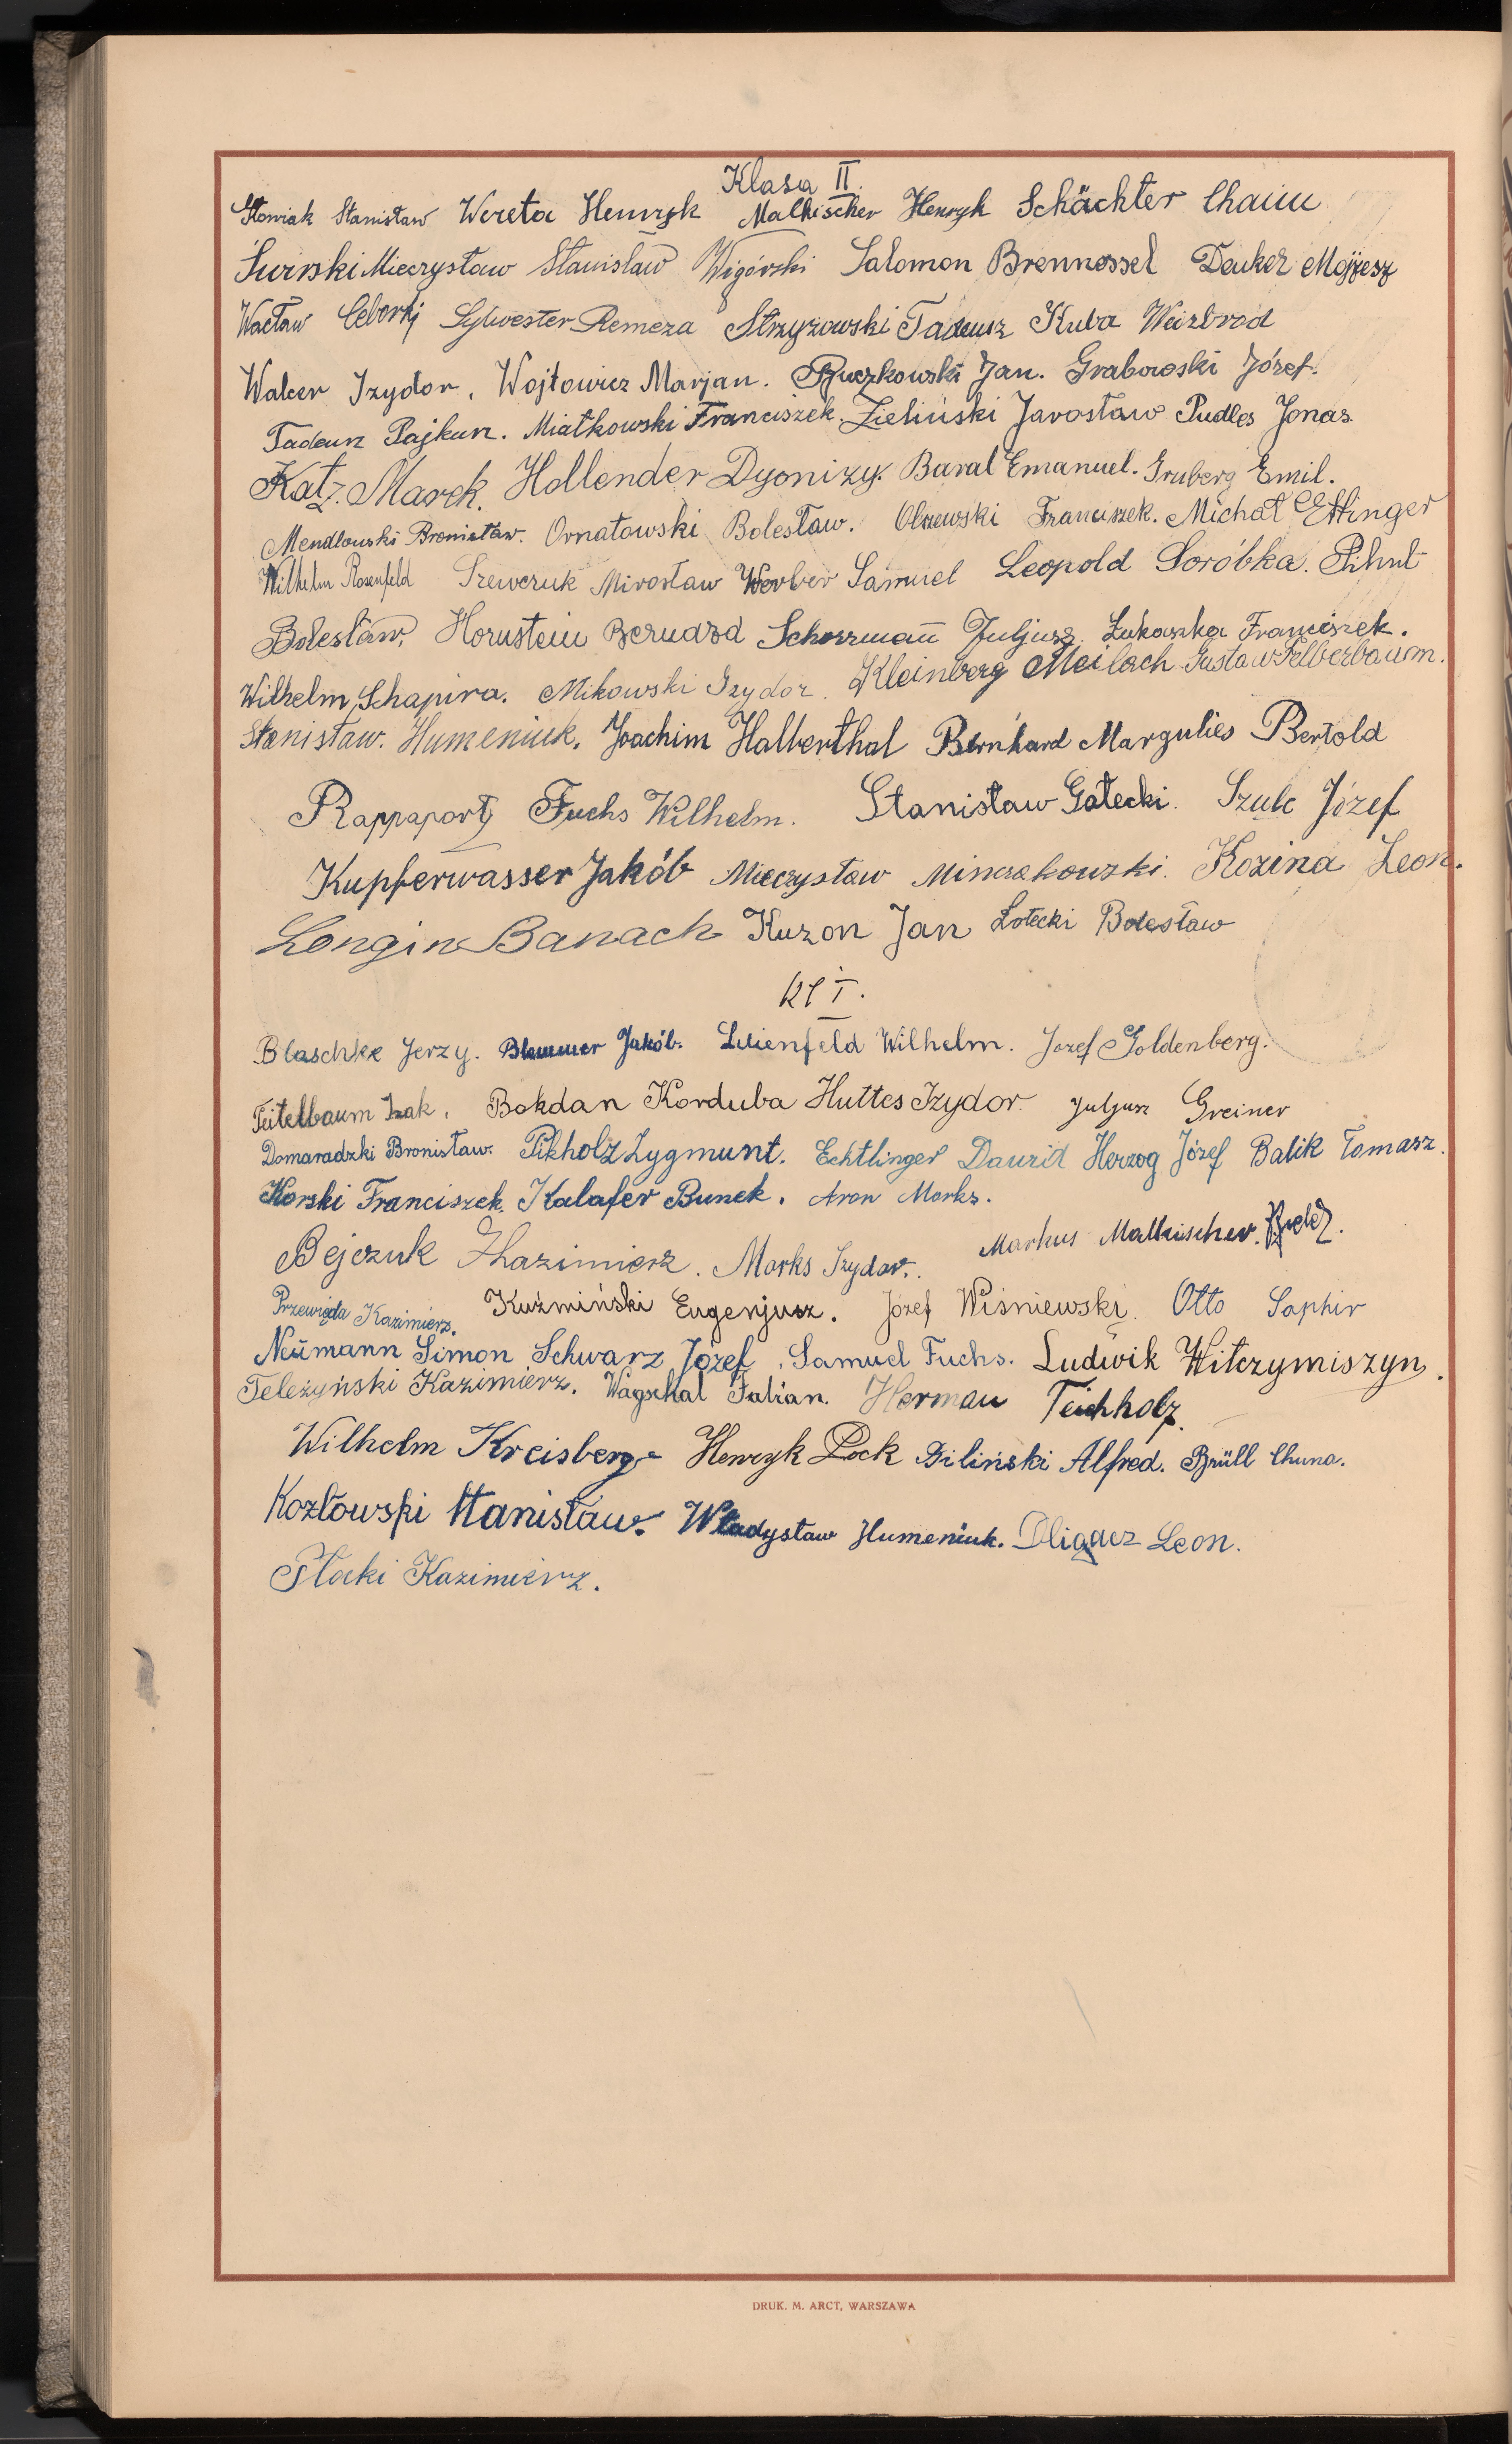 Klasa II.
Słowiak Stanisław Wereta Henryk Malkischer Henryk Schächter Chaim
Surski Mieczysław Stanisław Wigórski Salomon Brennessel Deuker Mojżesz
Wacław Ceborkj Sylwester Remeza Strzyżowski Tadeusz Kuba Weizbrod
Walcer Izydor, Wojtowicz Marjan. Ruczkowski Jan. Grabowski Józef.
Tadeusz Pajkun. Miatkowski Franciszek. Zieliński Jarosław Pudles Jonas.
Katz Marek. Hollender Dyonizy. Baral Emanuel. Gruberg Emil.
Mendlowski Bronisław. Ornatowski Bolesław. Olszewski Franciszek. Michał Ettinger
Wilhelm Rosenfeld Szewczuk Mirosław Werber Samuel Leopold Soróbka. Pihut
Bolesław, Hornstein Bernard Schorrmann Juljusz. Łukaszka Franciszek.
Wilhelm Schapira. Mikowski Izydor. Kleinberg Meilach Gustaw Felberbaum.
Stanisław. Humeniuk. Joachim Halberthal Bernhard Margulies Bertold
Rappaport Fuchs Wilhelm. Stanisław Gałecki. Szulc Józef
Kupferwasser Jakób Mieczysław Minczakowski. Kozina Leon.
Longin Banach Kuzon Jan Łotecki Bolesław
Kl I.
Blaschke Jerzy. Blammer Jakób. Lilienfeld Wilhelm. Jozef Goldenberg.
Teitelbaum Izak. Bohdan Korduba Huttes Izydor. Juljusz Greiner
Domaradzki Bronisław. Pikholz Zygmunt. Echtlinger Dawid Herzog Józef Balik Tomasz.
Korski Franciszek. Kalafer Bunek. Aron Marks.
Bejczuk Kazimierz. Marks Izydor. Markus Malkischer.
Przewięda Kazimierz. Kuźmiński Eugenjusz. Józef Wiśniewski. Otto Saphir
Neumann Simon Schwarz Józef, Samuel Fuchs. Ludwik Hitczymiszyn.
Teleżyński Kazimierz. Wagschal Fabian. Herman Teichholz.
Wilhelm Kreisberg Henryk Pock Biliński Alfred. Brüll Chuna.
Kozłowski Stanisław. Władysław Humeniuk. Dligacz Leon.
Płocki Kazimierz.
DRUK. M. ARCT, WARSZAWA